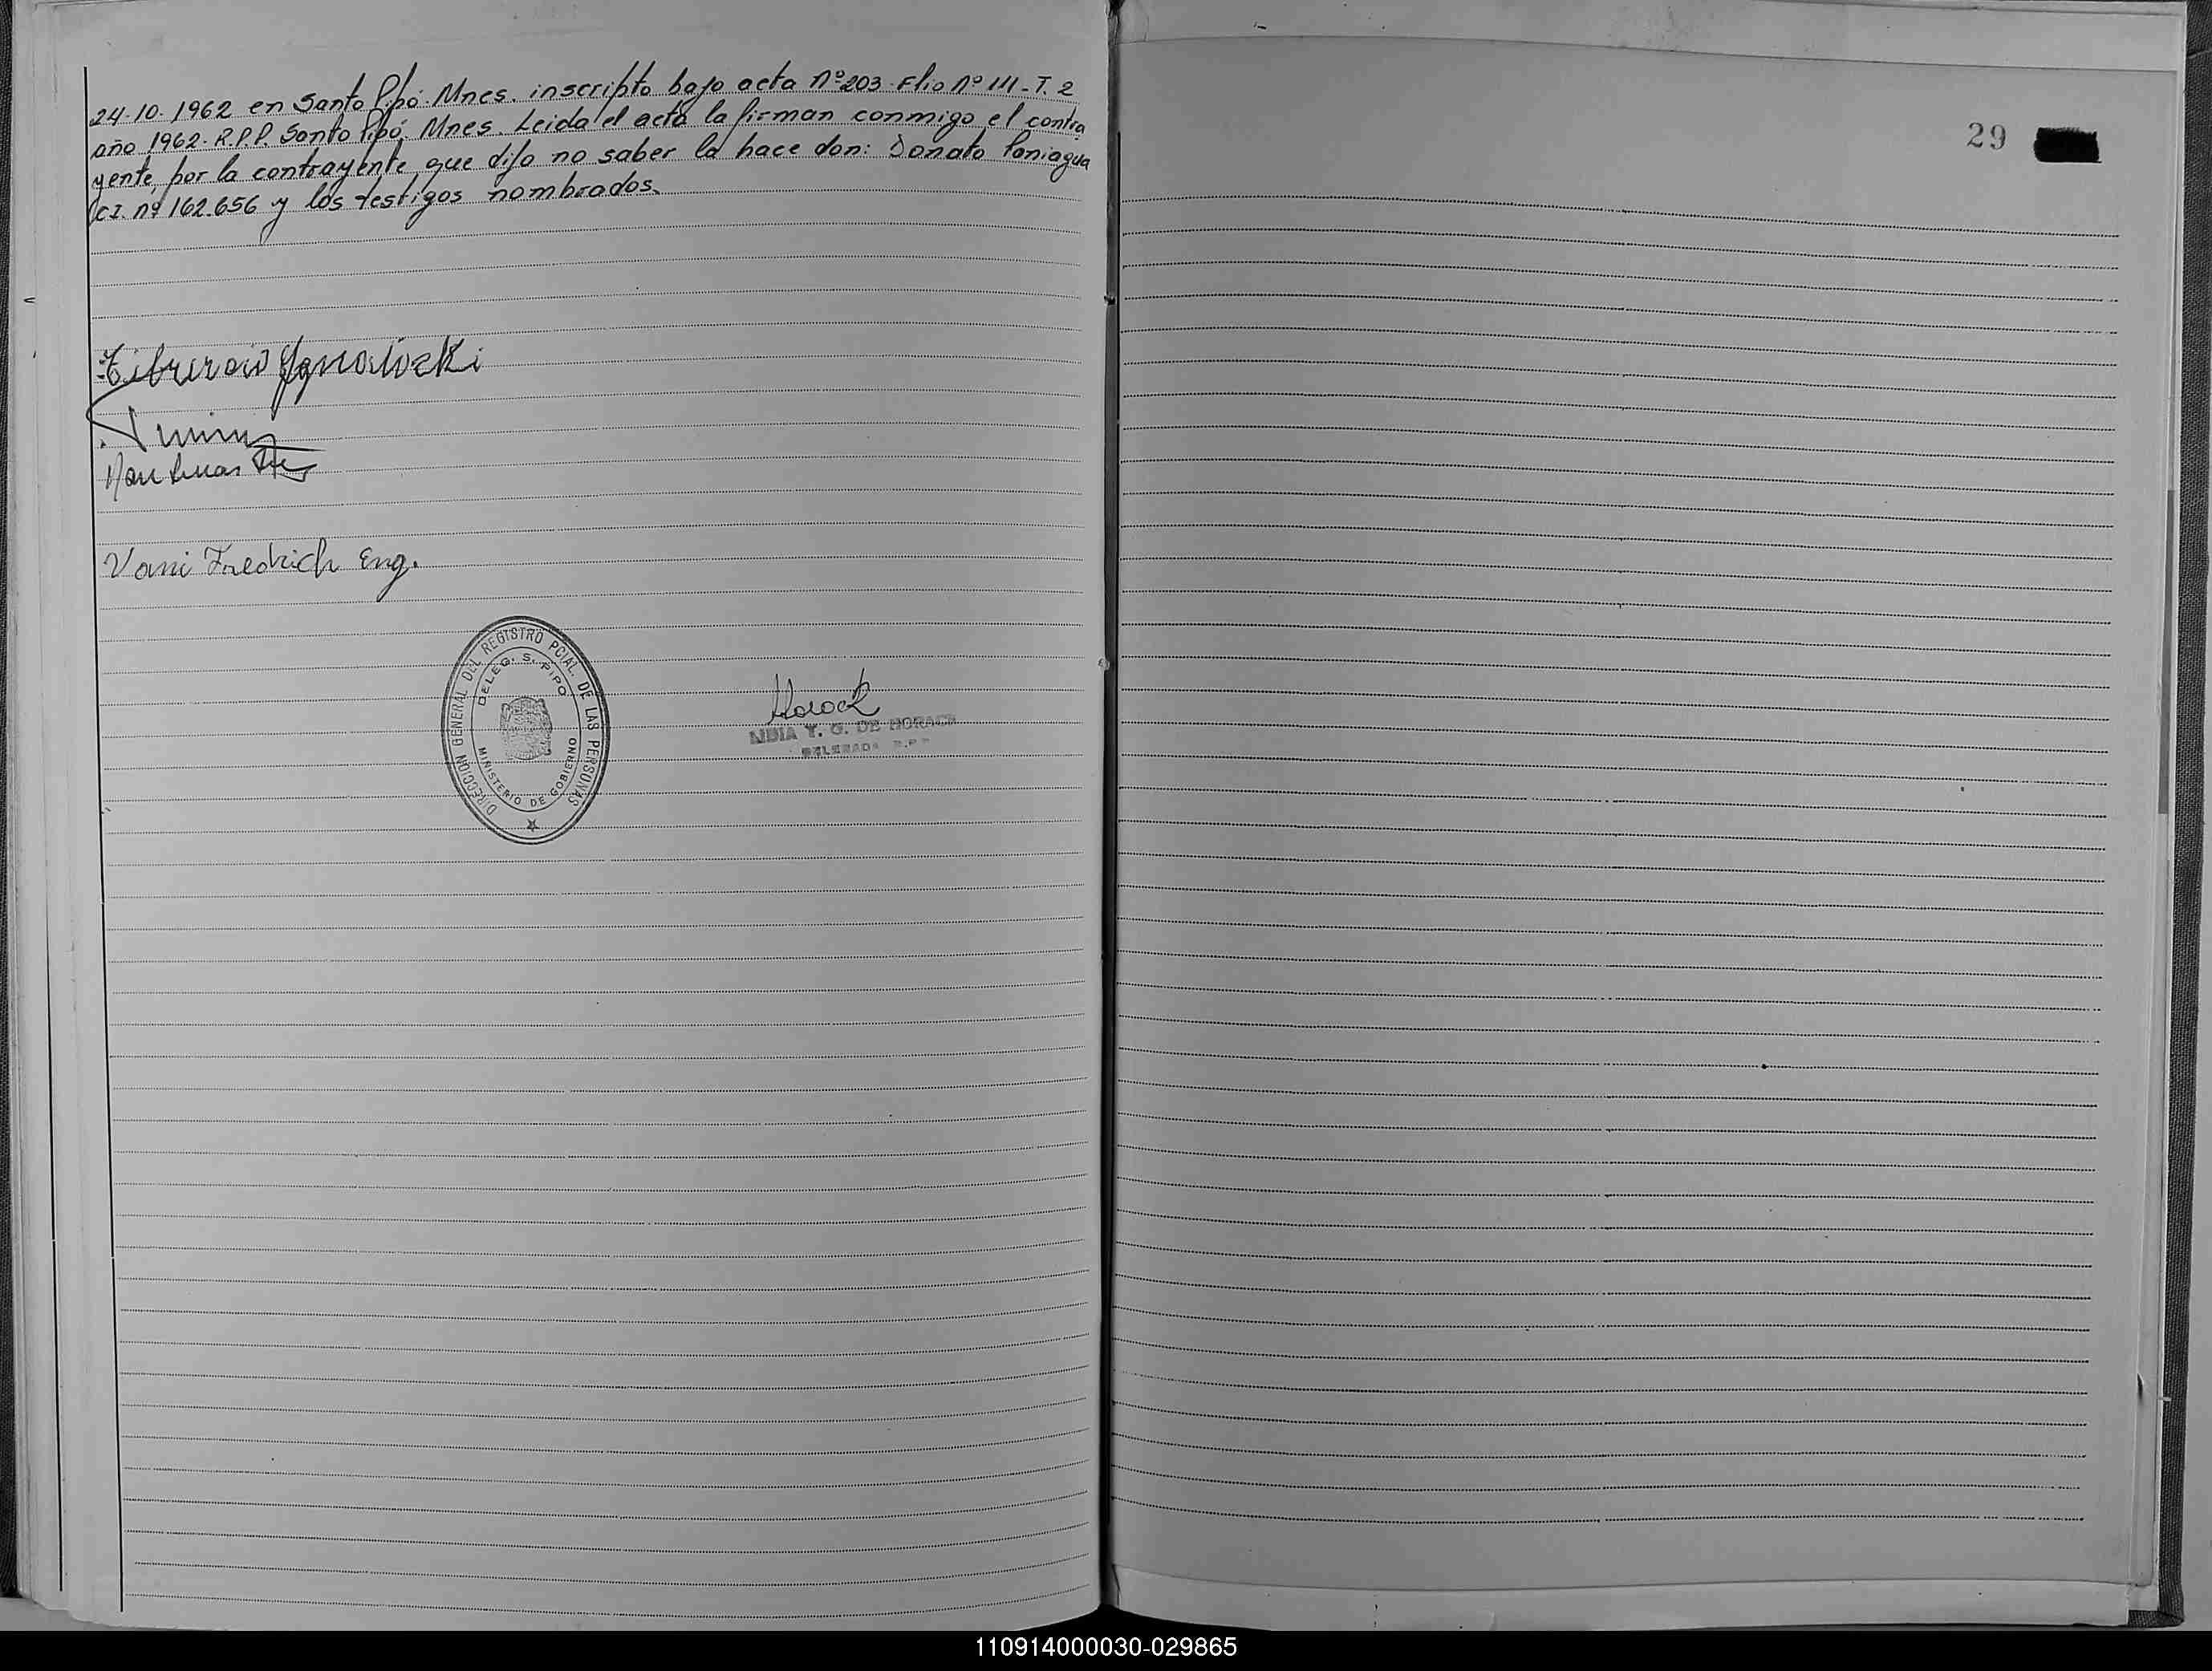 24.10.1962 en Santo Pipó. Mnes. inscripto bajo acta Nº 203 Flio Nº 111 - T. 2
año 1962. R.P.P. Santo Pipó. Mnes. Leida el acta la firman conmigo el contra
yente, por la contrayente, que dijo no saber lo hace don: Donato Paniagua
C.I. nº 162.656 y los testigos nombrados.
29
Vani Fredrich Eng.
DIRECCION GENERAL DEL REGISTRO PCIAL. DE LAS PERSONAS
DELEG. S. PIPO
MINISTERIO DE GOBIERNO
Y. G. DE
110914000030-029865